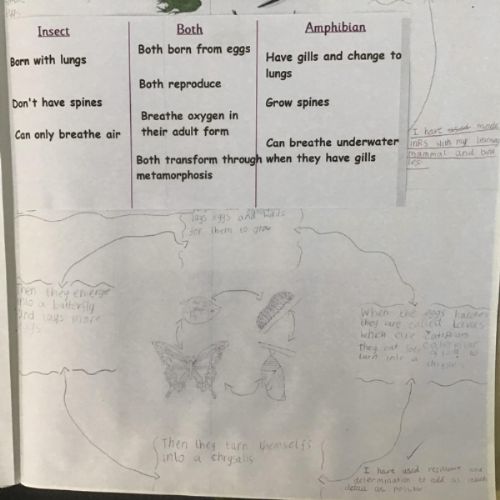 Insect
Both
Amphibian
Born with lungs
Don't have spines
Can only breathe air
Both born from eggs
Both reproduce
Breathe oxygen in
their adult form
Both transform through
metamorphosis
Have gills and change to
lungs
Grow spines
Can breathe underwater
when they have gills
I have made
links with my
mammal and
lays eggs and waits
for them to grow
When the eggs hatches
they are called
which are
they eat
turn into a
Then they turn themselfs
into a chrysalis
then they emerge
into a butterfly
and lays more
eggs
I have used and
determination to add as much
detail as possible